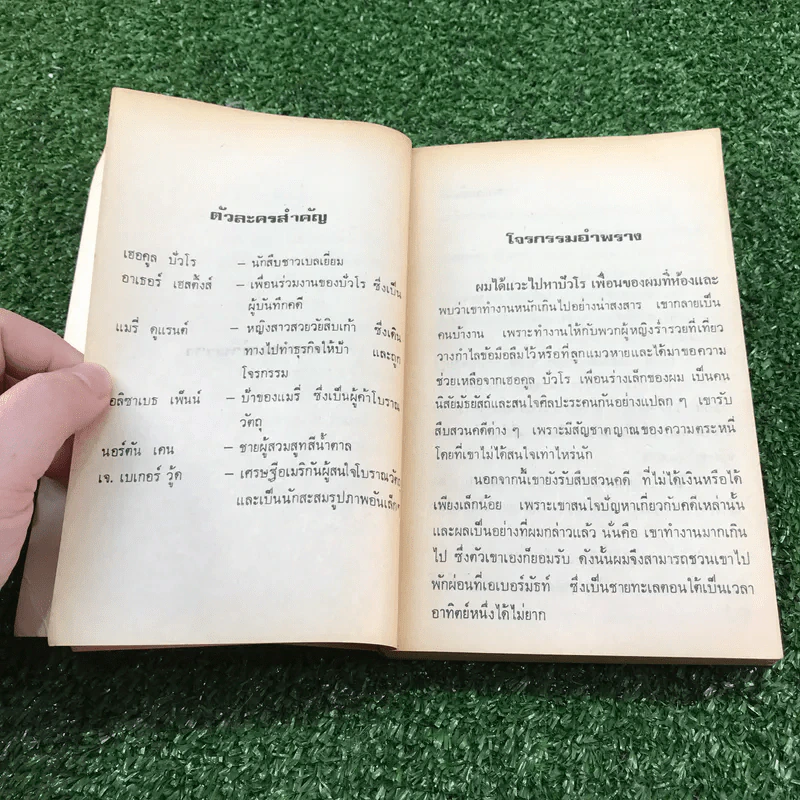 ตัวละครสำคัญ
เฮอคูล ปัวโร – นักสืบชาวเบลเยี่ยม
อาเธอร์ เฮสติ้งส์ – เพื่อนร่วมงานของปัวโร ซึ่งเป็น
ผู้บันทึกคดี
แมรี่ ดูแรนต์ – หญิงสาวสวยวัยสิบเก้า ซึ่งเดิน
ทางไปทำธุรกิจให้ป้า และถูก
โจรกรรม
อลิซาเบธ เพ็นน์ – ป้าของแมรี่ ซึ่งเป็นผู้ค้าโบราณ
วัตถุ
นอร์ตัน เคน – ชายผู้สวมสูทสีน้ำตาล
เจ. เบเกอร์ วู้ด – เศรษฐีอเมริกันผู้สนใจโบราณวัตถุ
และเป็นนักสะสมรูปภาพอันเล็กๆ
โจรกรรมอำพราง
ผมได้แวะไปหาปัวโร เพื่อนของผมที่ห้องและ
พบว่าเขาทำงานหนักเกินไปอย่างน่าสงสาร เขากลายเป็น
คนบ้างาน เพราะทำงานให้กับพวกผู้หญิงร่ำรวยที่เที่ยว
วางกำไลข้อมือลืมไว้หรือที่ลูกแมวหายและได้มาขอความ
ช่วยเหลือจากเฮอคูล ปัวโร เพื่อนร่างเล็กของผม เป็นคน
นิสัยมัธยัสถ์และสนใจศิลปะระคนกันอย่างแปลก ๆ เขารับ
สืบสวนคดีต่าง ๆ เพราะมีสัญชาตญาณของความตระหนี่
โดยที่เขาไม่ได้สนใจเท่าไหร่นัก
นอกจากนี้เขายังรับสืบสวนคดี ที่ไม่ได้เงินหรือได้
เพียงเล็กน้อย เพราะเขาสนใจปัญหาเกี่ยวกับคดีเหล่านั้น
และผลเป็นอย่างที่ผมกล่าวแล้ว นั่นคือ เขาทำงานมากเกิน
ไป ซึ่งตัวเขาเองก็ยอมรับ ดังนั้นผมจึงสามารถชวนเขาไป
พักผ่อนที่เอเบอร์มัธท์ ซึ่งเป็นชายทะเลตอนใต้เป็นเวลา
อาทิตย์หนึ่งได้ไม่ยาก